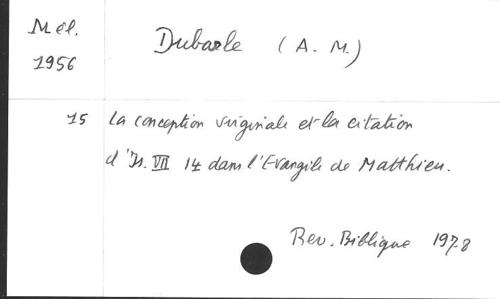 Mél.
1956
Dubarle (A. M.)
75 La conception virginale et la citation
d'Is. VII 14 dans l'Evangile de Matthieu.
Rev. Biblique 1978